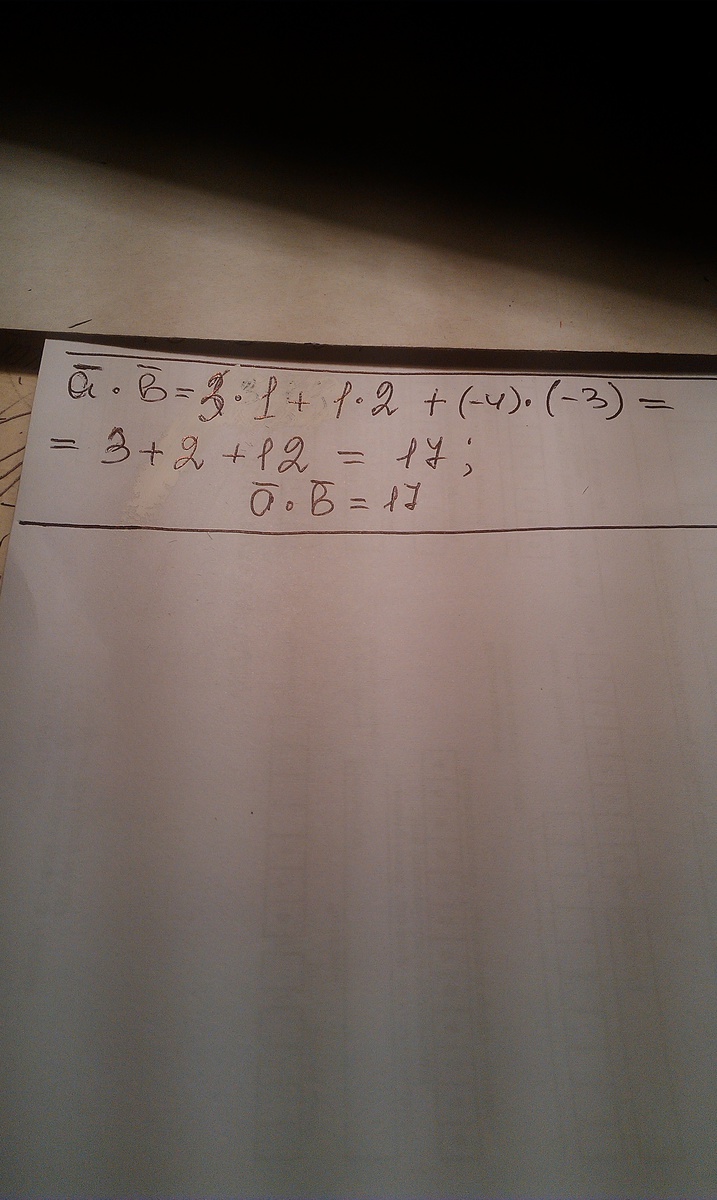 a̅ · b̅ = 3·1 + 1·2 + (-4)·(-3) =
= 3 + 2 + 12 = 17;
a̅ · b̅ = 17